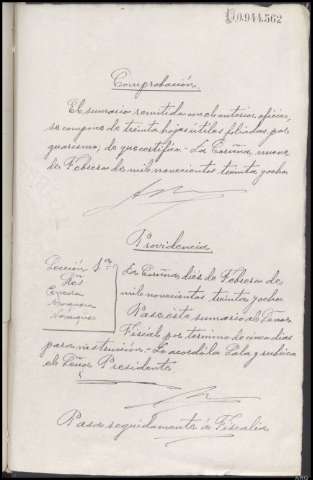 0.944.562
Comprobación.
El sumario remitido con el anterior oficio,
se compone de treinta hojas útiles foliadas por
guarismo; de que certifico - La Coruña, nueve
de Febrero de mil novecientos treinta y ocho
Providencia
Sección 1ª
La Coruña diez de Febrero de
mil novecientos treinta y ocho
Pase ésta sumario al Señor
Fiscal por termino de cinco dias
para instrucción - Lo acordó la Sala y rubrica
el Señor Presidente
Pasa seguidamente á Fiscalía